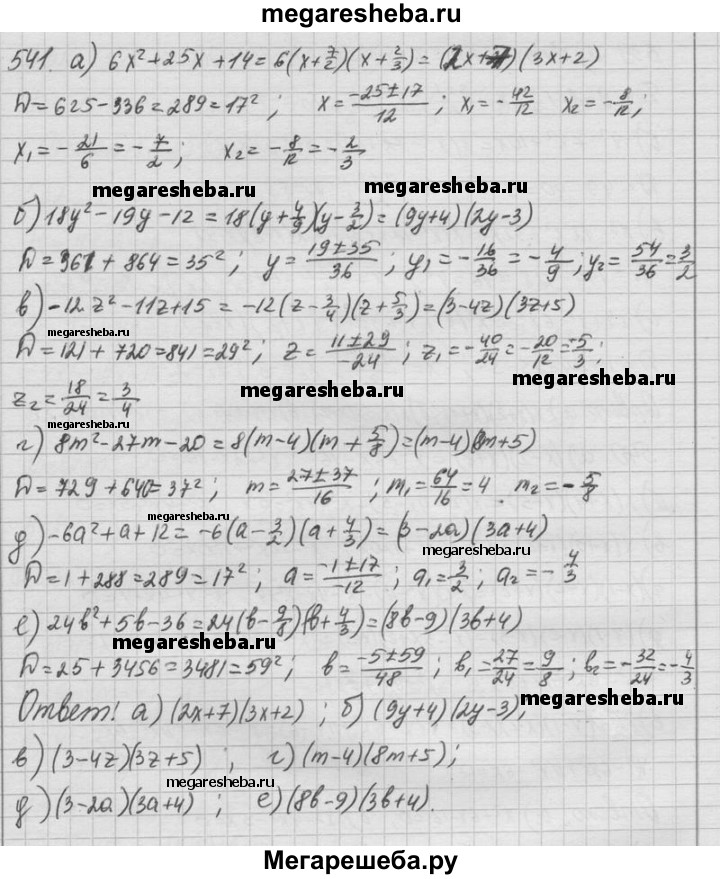 megaresheba.ru
541. а) 6x²+25x+14=6(x+7/2)(x+2/3)=(2x+7)(3x+2)
D=625-336=289=17²; x=(-25±17)/12; x₁=-42/12 x₂=-8/12;
x₁=-21/6=-7/2; x₂=-8/12=-2/3
megaresheba.ru megaresheba.ru
б) 18y²-19y-12=18(y+4/9)(y-3/2)=(9y+4)(2y-3)
D=361+864=35²; y=(19±35)/36; y₁=-16/36=-4/9; y₂=54/36=3/2
в) -12z²-11z+15=-12(z-3/4)(z+5/3)=(3-4z)(3z+5)
megaresheba.ru
D=121+720=841=29²; z=(11±29)/-24; z₁=-40/24=-20/12=-5/3;
z₂=18/24=3/4
megaresheba.ru megaresheba.ru
г) 8m²-27m-20=8(m-4)(m+5/8)=(m-4)(8m+5)
D=729+640=37²; m=(27±37)/16; m₁=64/16=4. m₂=-5/8
megaresheba.ru
д) -6a²+a+12=-6(a-3/2)(a+4/3)=(3-2a)(3a+4)
megaresheba.ru
D=1+288=289=17²; a=(-1±17)/-12; a₁=3/2; a₂=-4/3
е) 24b²+5b-36=24(b-9/8)(b+4/3)=(8b-9)(3b+4)
megaresheba.ru
D=25+3456=3481=59²; b=(-5±59)/48; b₁=27/24=9/8; b₂=-32/24=-4/3
megaresheba.ru
Ответ! а) (2x+7)(3x+2); б) (9y+4)(2y-3);
в) (3-4z)(3z+5); г) (m-4)(8m+5);
megaresheba.ru
д) (3-2a)(3a+4); е) (8b-9)(3b+4).
megaresheba.ru
Мегарешеба.ру